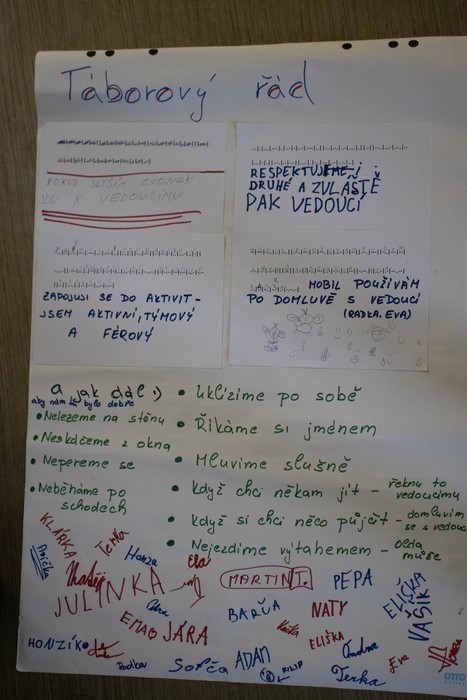 Táborový řád
POKUD SLYŠÍM ZVONEK
JDU K VEDOUCÍMU
RESPEKTUJEME I
DRUHÉ A ZVLÁŠTĚ
PAK VEDOUCÍ
ZAPOJUJI SE DO AKTIVIT -
JSEM AKTIVNÍ, TÝMOVÝ
A FÉROVÝ
MOBIL POUŽÍVÁM
PO DOMLUVĚ S VEDOUCÍ
(RADKA, EVA)
a jak dál :)
aby nám tu bylo dobře
• Nelezeme na stěnu
• Neskáčeme z okna
• Nepereme se
• Neběháme po
schodech
• Uklízíme po sobě
• Říkáme si jménem
• Mluvíme slušně
• Když chci někam jít - řeknu to
vedoucímu
• Když si chci něco půjčit - domluvím
se s vedouc
• Nejezdíme výtahemem - Olda
může
KLÁRKA
Anička
Terka
Honza
Eva
Matěj
JULINKA
MARTIN T.
PEPA
ELIŠKA
VAŠÍK
EMA
JÁRA
BARČA
NATY
Káťa
ELIŠKA
HONZÍK
Radka
Sofča
ADAM
FILIP
Ondra
Terka
Eva
OTTO